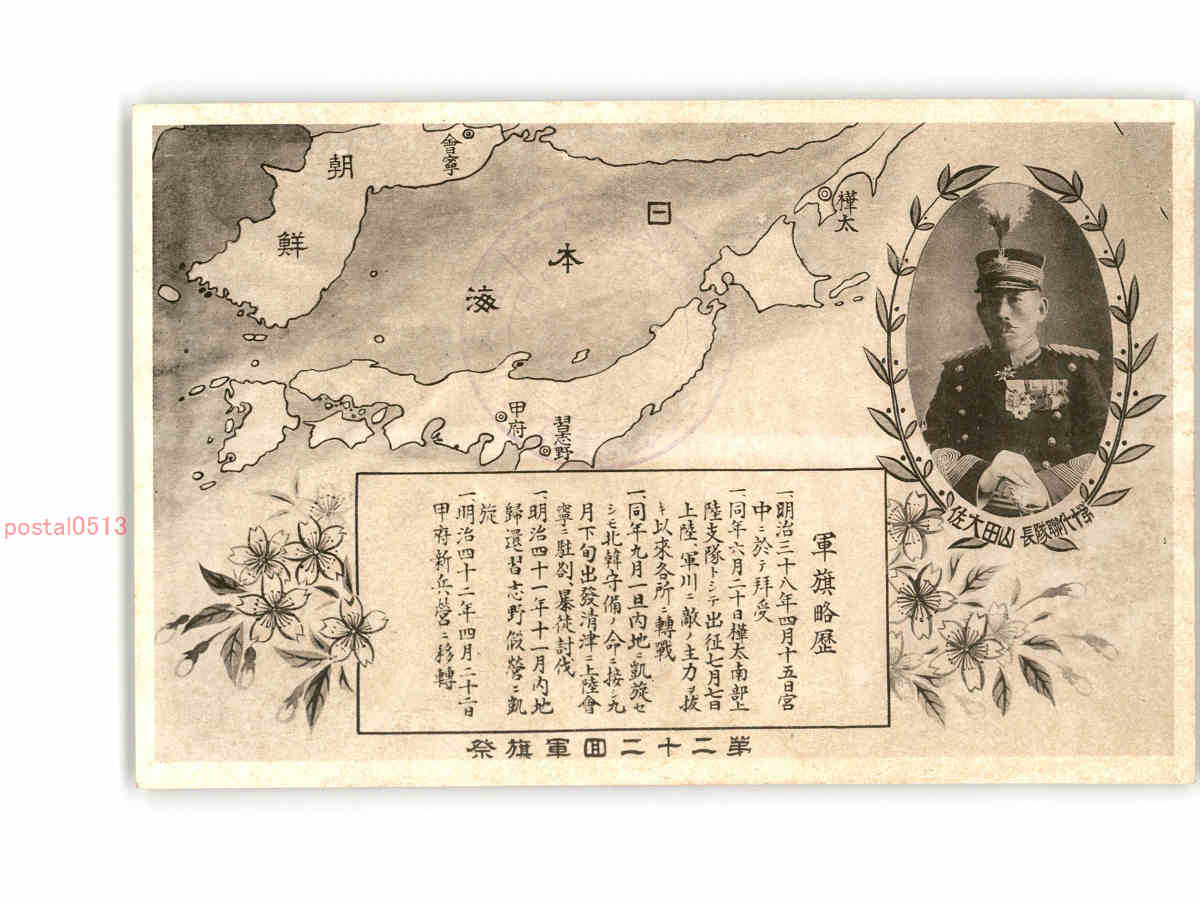 會寧
朝鮮
樺太
日本海
甲府
習志野
第十代聯隊長 山田大佐
軍旗略歴
一、明治三十八年四月十五日宮
中ニ於テ拜受
一、同年六月二十日樺太南部上
陸支隊トシテ出征七月七日
上陸、軍川ニ敵ノ主力ヲ拔
キ以來各所ニ轉戰
一、同年九月一旦內地ニ凱旋セ
シモ北韓守備ノ命ニ接シ九
月下旬出發淸津ニ上陸會
寧ニ駐剳、暴徒討伐
一、明治四十一年十一月內地ニ
歸還習志野假營ニ凱
旋
一、明治四十二年四月二十二日
甲府新兵營ニ移轉
第二十二回軍旗祭
postal0513